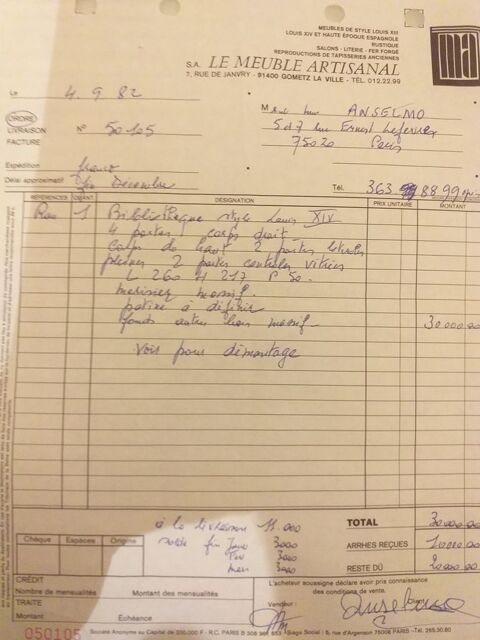 MEUBLES DE STYLE LOUIS XIII
LOUIS XIV ET HAUTE ÉPOQUE ESPAGNOLE
RUSTIQUE
SALONS - LITERIE - FER FORGÉ
REPRODUCTIONS DE TAPISSERIES ANCIENNES
S.A. LE MEUBLE ARTISANAL
7, RUE DE JANVRY - 91400 GOMETZ LA VILLE - TÉL. 012.22.99
ma
Le 4.9.82
ORDRE
LIVRAISON N° 50105
FACTURE
M ANSELMO
5 d 7 rue Ernest Lefevre
75020 Paris
Expédition franco
Délai approximatif fin Décembre
Tél. 363 88 99
RÉFÉRENCES QUANT. DÉSIGNATION PRIX UNITAIRE MONTANT
1 Bibliothèque style Louis XIV
4 portes corps droit
corps du haut 2 portes latérales
pleines 2 portes centrales vitrées
L 260 H 217 P 50.
merisier massif.
patine à définir
fonds autre bois massif 30 000.00
Voir pour démontage
à la livraison 11.000
solde fin Janv 3000
Fev 3000
mars 3000
TOTAL 30000.00
ARRHES REÇUES 10000.00
RESTE DÛ 20000.00
Chèque Espèces Origine
CRÉDIT
Nombre de mensualités Montant des mensualités
TRAITE
Montant Échéance
L'acheteur soussigné déclare avoir pris connaissance
des conditions de vente.
Vendeur :
050105
Société Anonyme au Capital de 250.000 F - R.C. PARIS B 308 966 553 Siège Social : 5, Rue d'Anjou, 75008 PARIS - Tél. 265.30.60